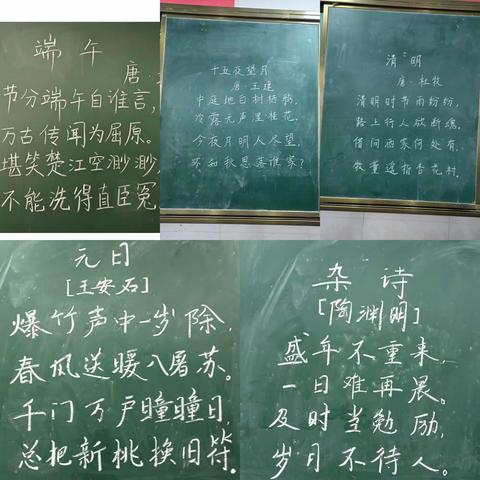 端午
唐·
节分端午自谁言,
万古传闻为屈原。
堪笑楚江空渺渺,
不能洗得直臣冤
十五夜望月
唐·王建
中庭地白树栖鸦,
冷露无声湿桂花。
今夜月明人尽望,
不知秋思落谁家?
清明
唐·杜牧
清明时节雨纷纷,
路上行人欲断魂。
借问酒家何处有,
牧童遥指杏花村。
元日
[王安石]
爆竹声中一岁除,
春风送暖入屠苏。
千门万户曈曈日,
总把新桃换旧符.
杂诗
[陶渊明]
盛年不重来,
一日难再晨。
及时当勉励,
岁月不待人。